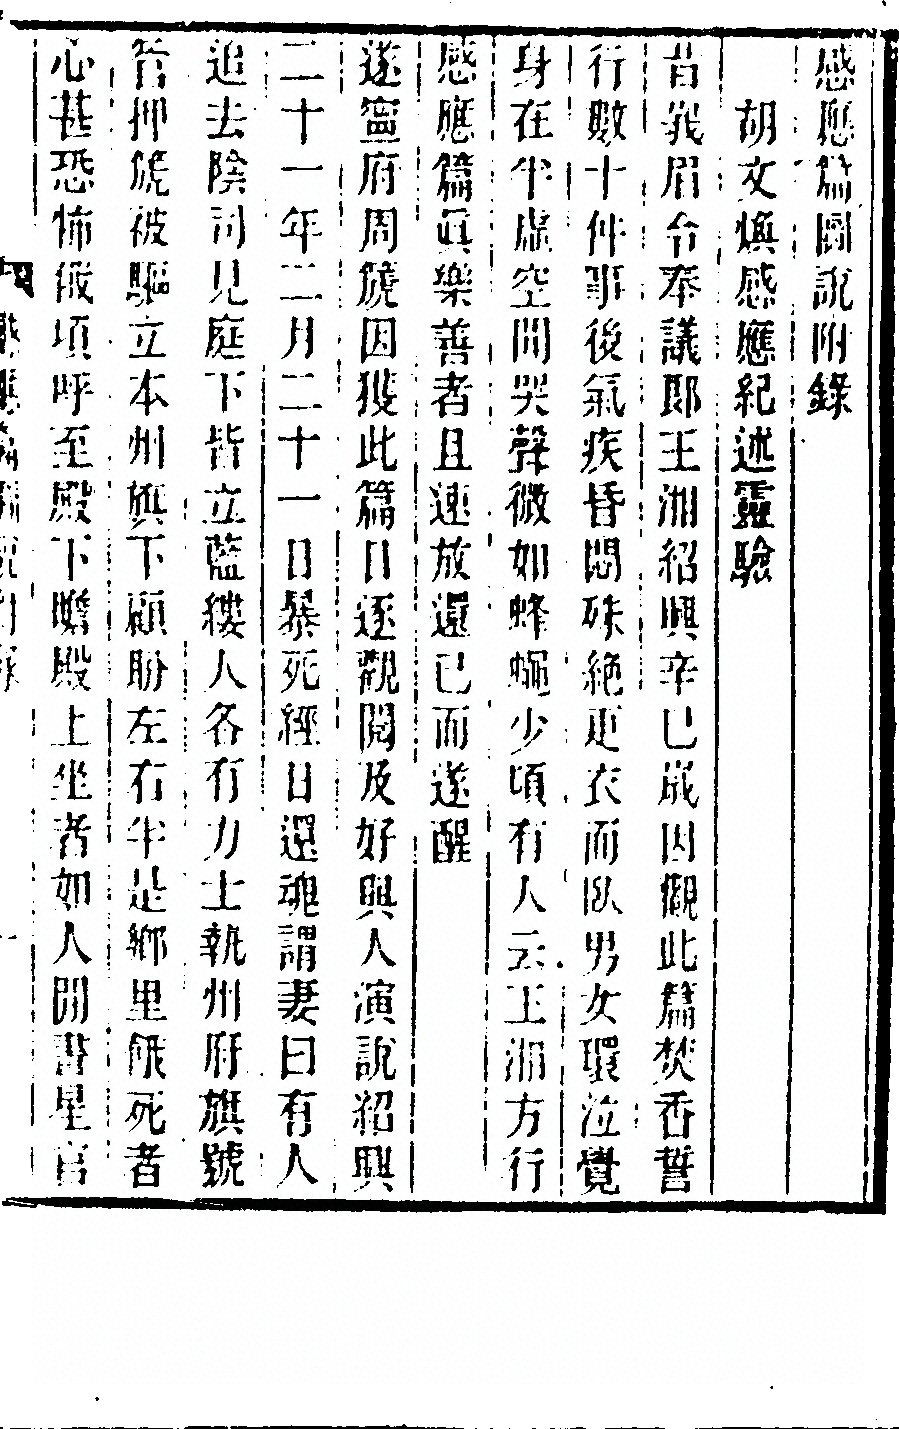 感應篇圖說附錄
胡文煥感應紀述靈驗
昔峩眉令奉議郎王湘紹興辛巳歲因觀此篇焚香誓
行數十件事後氣疾昏悶殊絕更衣而臥男女環泣覺
身在半虛空聞哭聲微如蜂蠅少頃有人云王湘方行
感應篇眞樂善者且速放還已而遂醒
遂寧府周箎因獲此篇日逐觀閱及好與人演說紹興
二十一年二月二十一日暴死經日還魂謂妻曰有人
追去陰司見庭下皆立藍縷人各有力士執州府旗號
管押箎被驅立本州旗下顧盼左右半是鄉里餓死者
心甚恐怖俄頃呼至殿下瞻殿上坐者如人間畫星官
感應篇圖說附錄